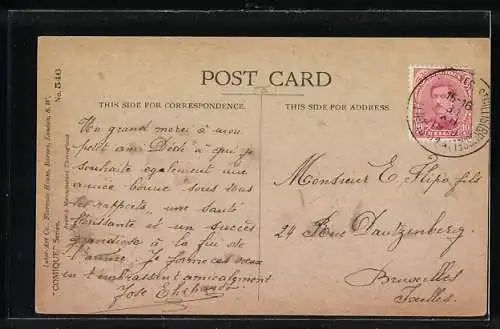 POST CARD
THIS SIDE FOR CORRESPONDENCE.
THIS SIDE FOR ADDRESS.
"COMIQUE" Series.
Inter-Art Co., Florence House, Barnes, London, S.W.
British Manufacture Throughout
No. 546
Un grand merci à mon
petit ami Dédé à qui je
souhaite également une
année bonne sous tous
les rapports, une santé
florissante et un succès
grandiose à la fin de
l'année. Je forme ces vœux
en t'embrassant amicalement
José
Monsieur E. Flipo fils
24 Rue Dautzenberg
Bruxelles
Ixelles.
15-16